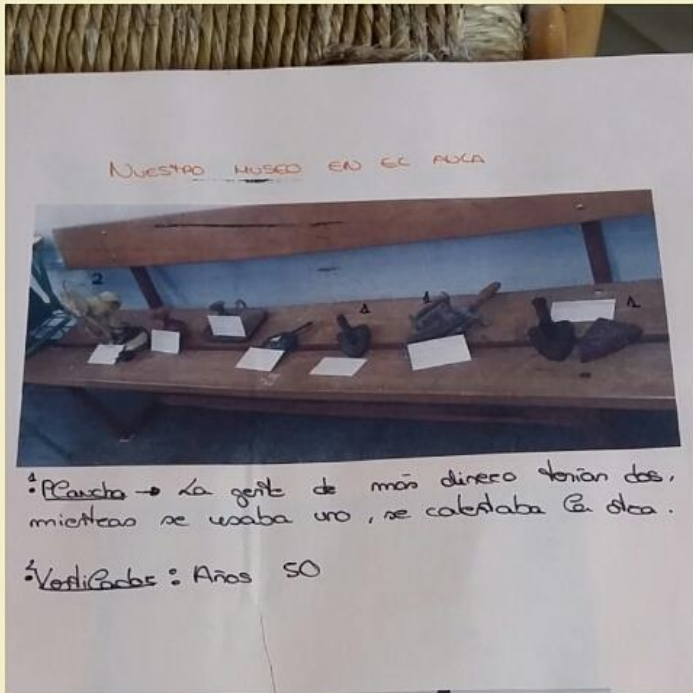 NUESTRO MUSEO EN EL AULA
2
1
1
1
1. Plancha → La gente de más dinero tenían dos,
mientras se usaba uno, se calentaba la otra.
2. Ventilador: Años 50